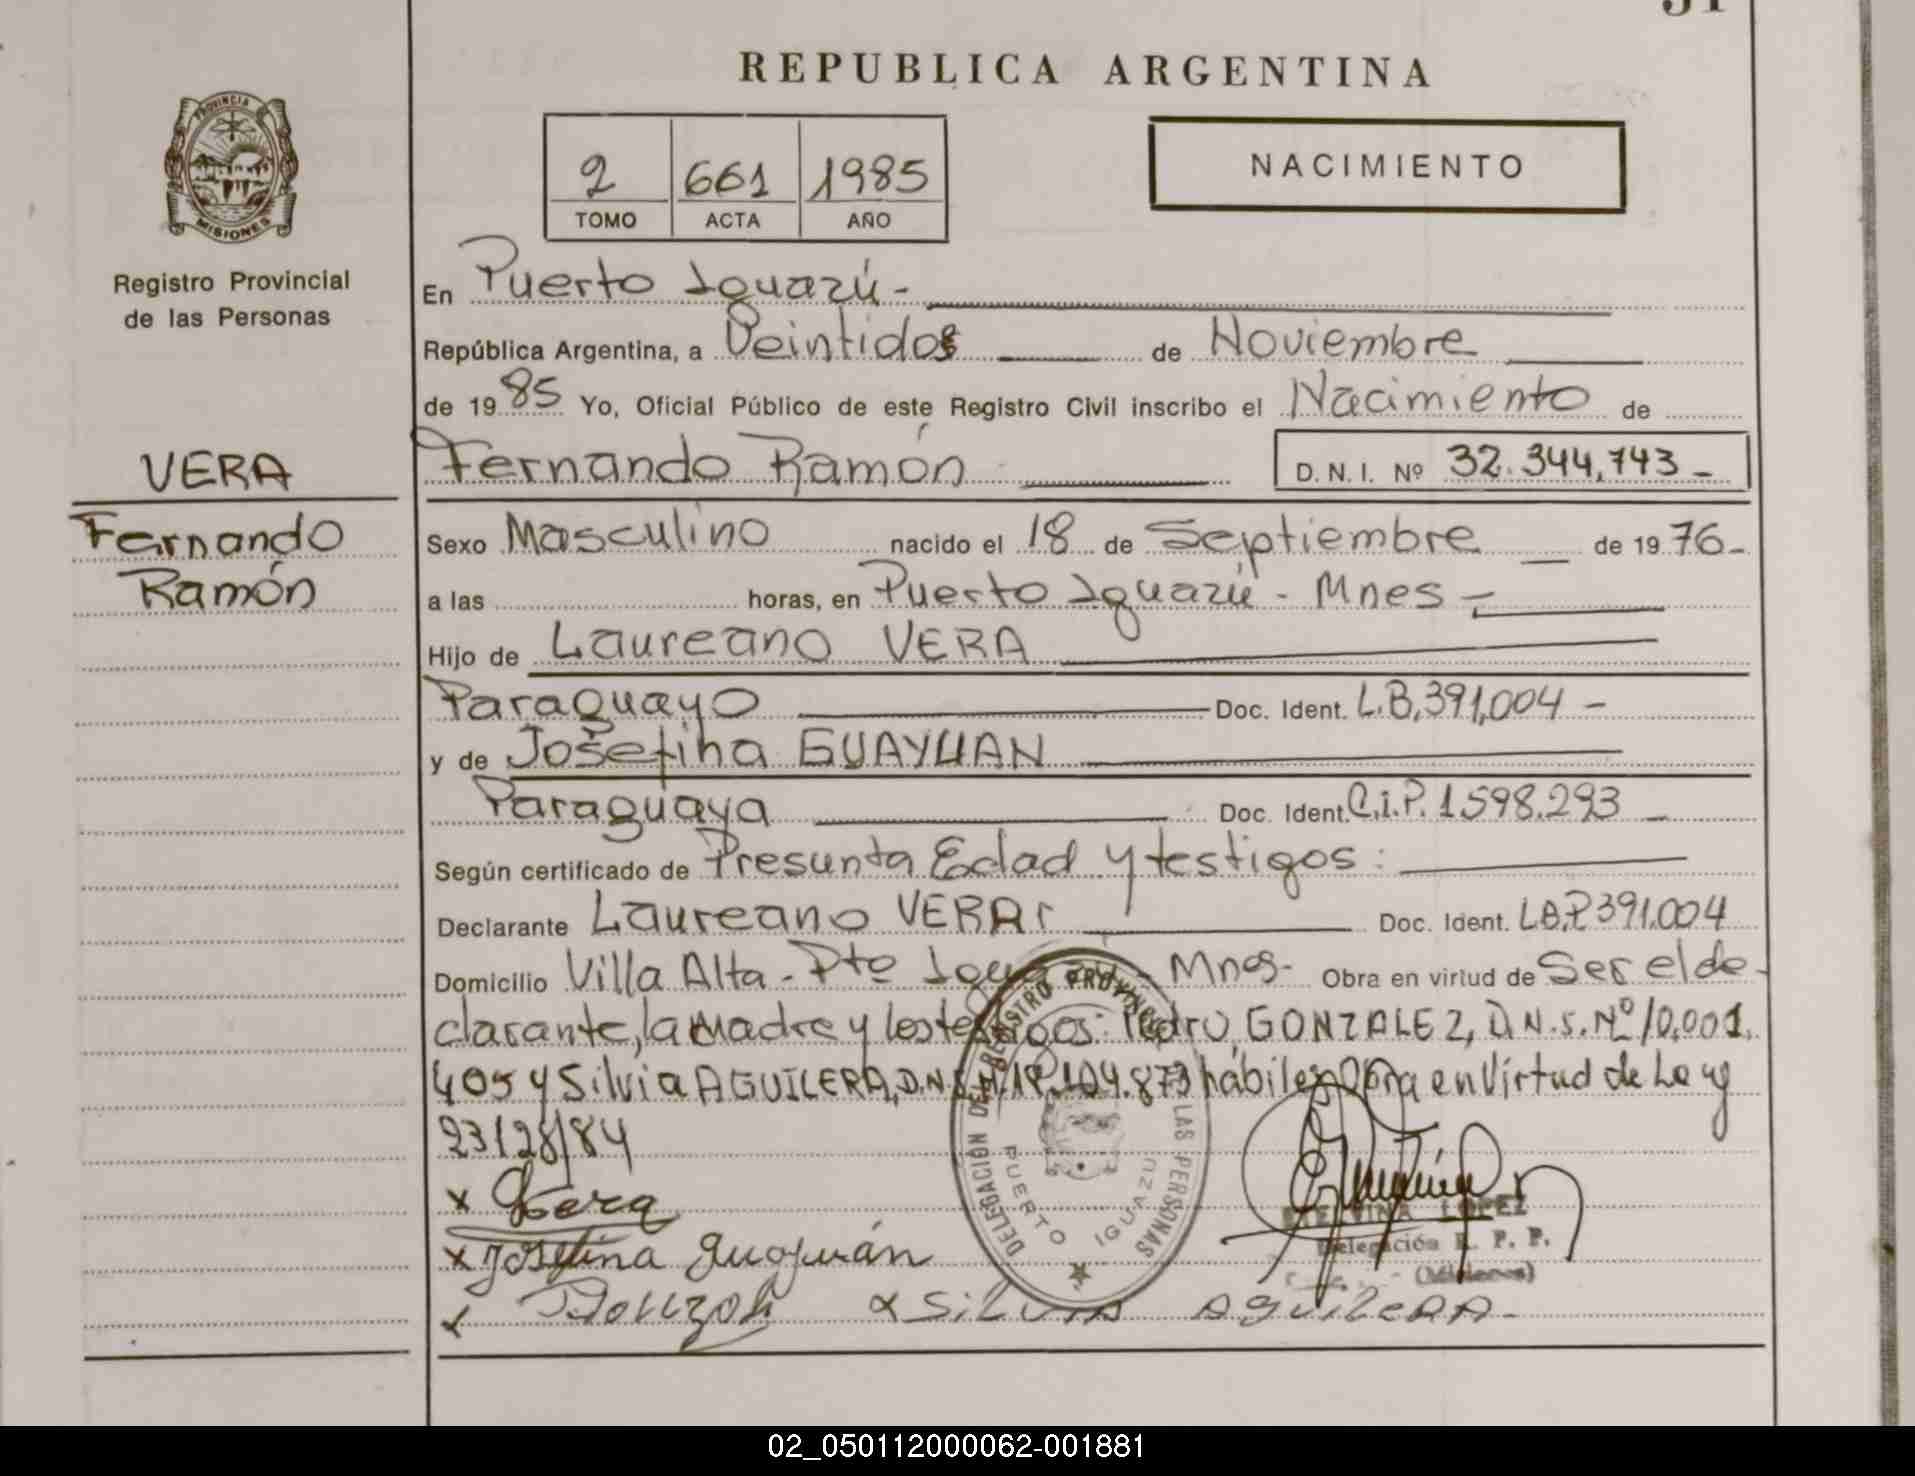 REPUBLICA ARGENTINA
PROVINCIA
MISIONES
Registro Provincial
de las Personas
2 661 1985
TOMO ACTA AÑO
NACIMIENTO
En Puerto Iguazú -
República Argentina, a Veintidos de Noviembre
de 1985 Yo, Oficial Público de este Registro Civil inscribo el Nacimiento de
VERA
Fernando
Ramón
Fernando Ramón D. N. I. Nº 32.344,743 -
Sexo Masculino nacido el 18 de Septiembre de 1976 -
a las horas, en Puerto Iguazú - Mnes -
Hijo de Laureano VERA
Paraguayo Doc. Ident. L.B,391,004 -
y de Josefina GUAYUAN
Paraguaya Doc. Ident. C.i.P. 1.598.293 -
Según certificado de Presunta Edad y testigos:
Declarante Laureano VERA Doc. Ident. 391.004
Domicilio Villa Alta - Pto Mnes - Obra en virtud de Ser el de-
clarante, la Madre y los testigos: Pedro GONZALEZ, D.N.S. Nº 10.001.
405 y Silvia AGUILERA, hábiles Obra en Virtud de Ley
23128/84
x Vera
x Josefina Guayuán
x Silvia Aguilera -
DELEGACION DEL REGISTRO PROVINCIAL DE LAS PERSONAS
PUERTO IGUAZU
LOPEZ
Delegación R. P. P.
(Misiones)
02_050112000062-001881